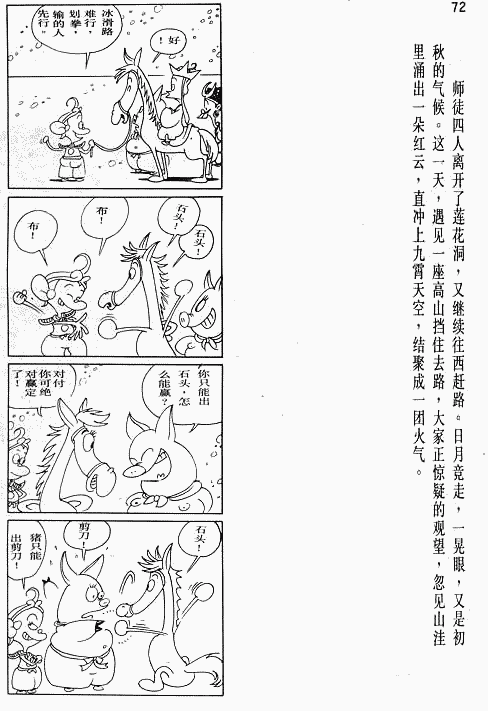 72
师徒四人离开了莲花洞，又继续往西赶路。日月竞走，一晃眼，又是初
秋的气候。这一天，遇见一座高山挡住去路，大家正惊疑的观望，忽见山洼
里涌出一朵红云，直冲上九霄天空，结聚成一团火气。
冰滑路
难行，
划拳，
输的人
先行。
好！
石头！
石头！
布！
布！
你只能出
石头，怎
么能赢？
对付
你可绝
对赢定
了！
石头！
剪刀！
猪只能
出剪刀！